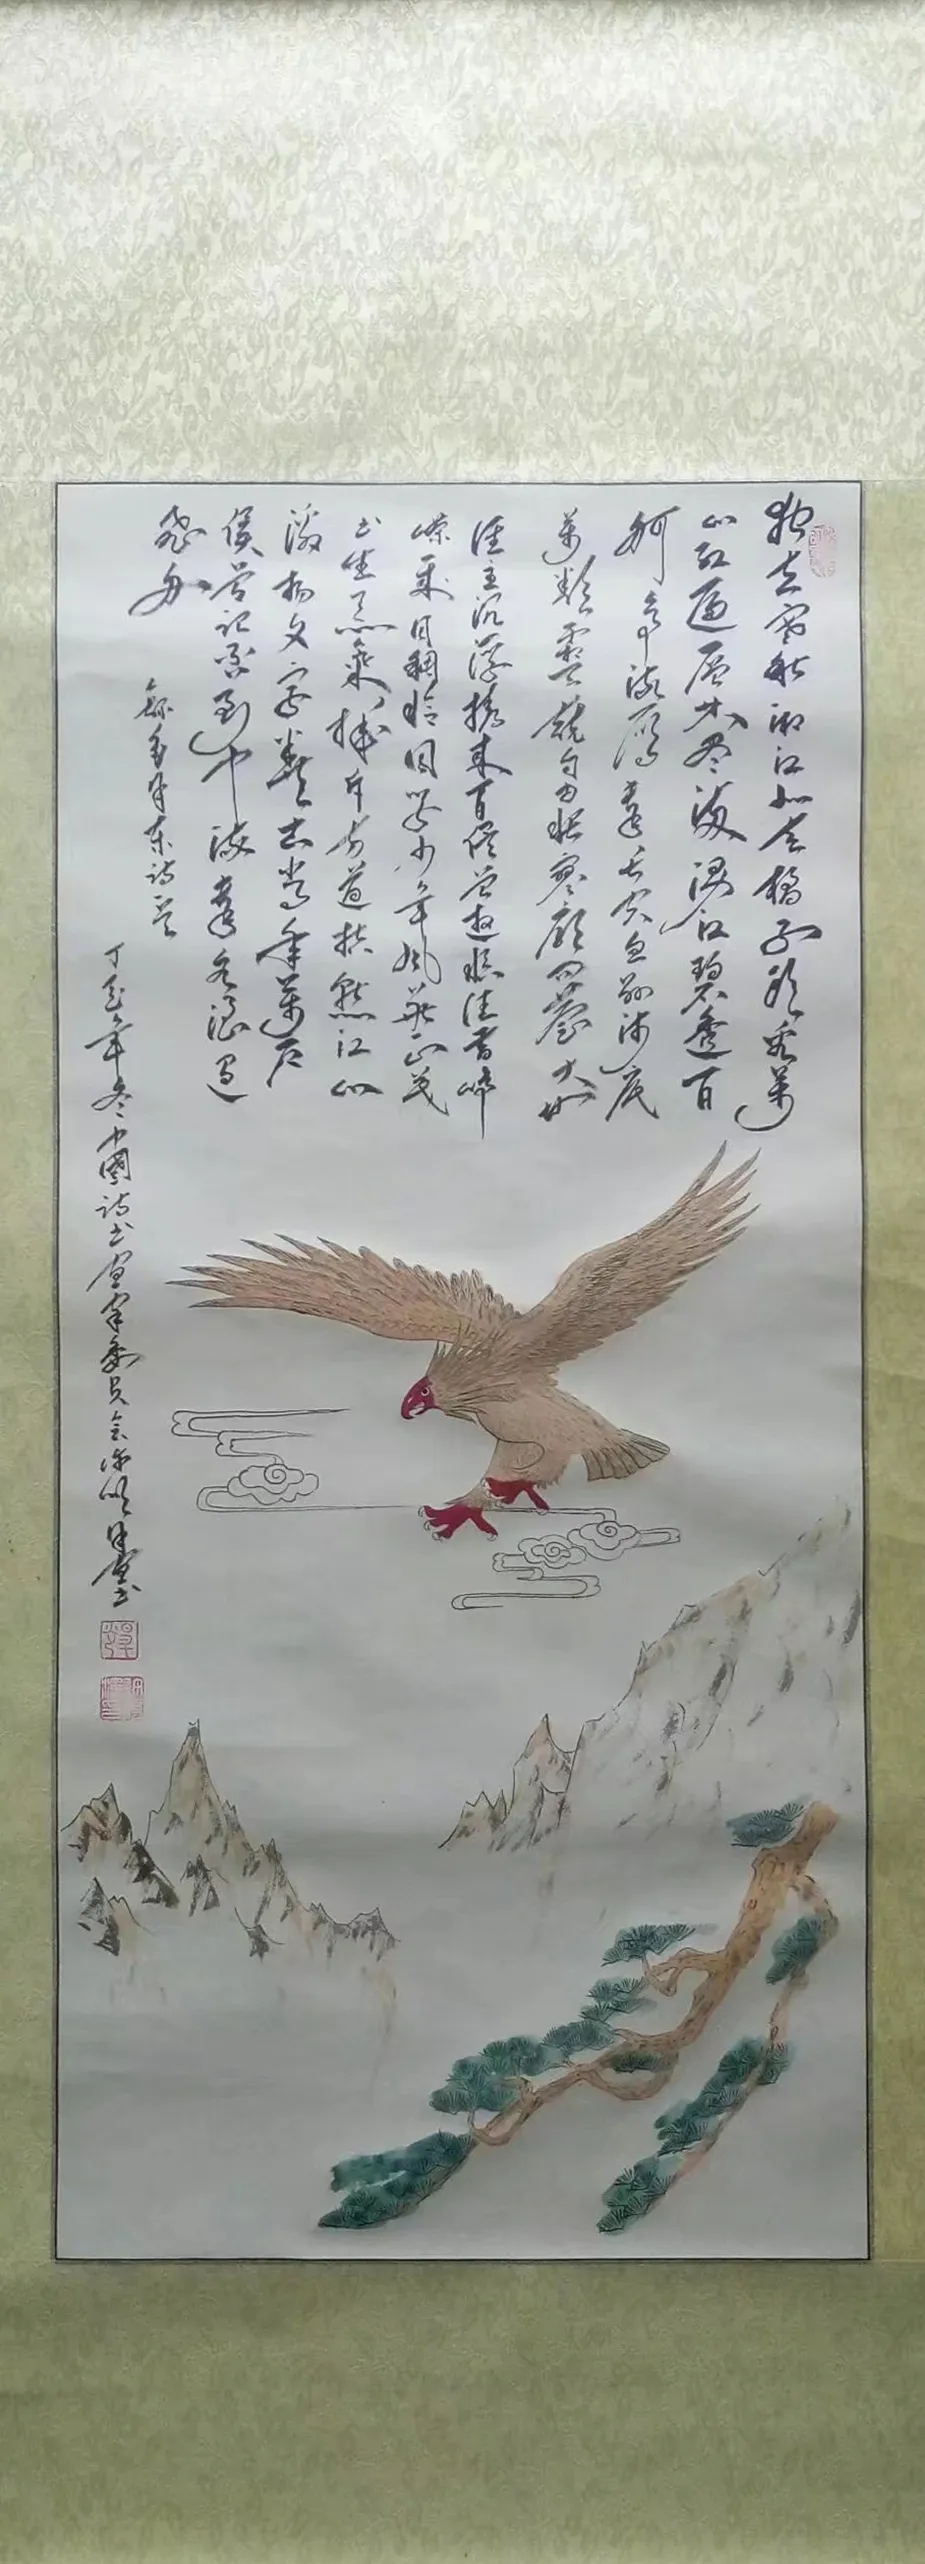 独立寒秋湘江北去橘子洲头看萬
山红遍层林尽染漫江碧透百
舸争流鹰击长空鱼翔浅底
萬類霜天競自由怅寥廓问苍茫大地
谁主沉浮携来百侣曾游忆往昔峥
嵘岁月稠恰同学少年风华正茂
书生意气挥斥方遒指点江山
激扬文字粪土当年萬户
侯曾记否到中流击水浪遏
飞舟
录毛泽东诗一首
丁酉年冬中國诗书画家委员会